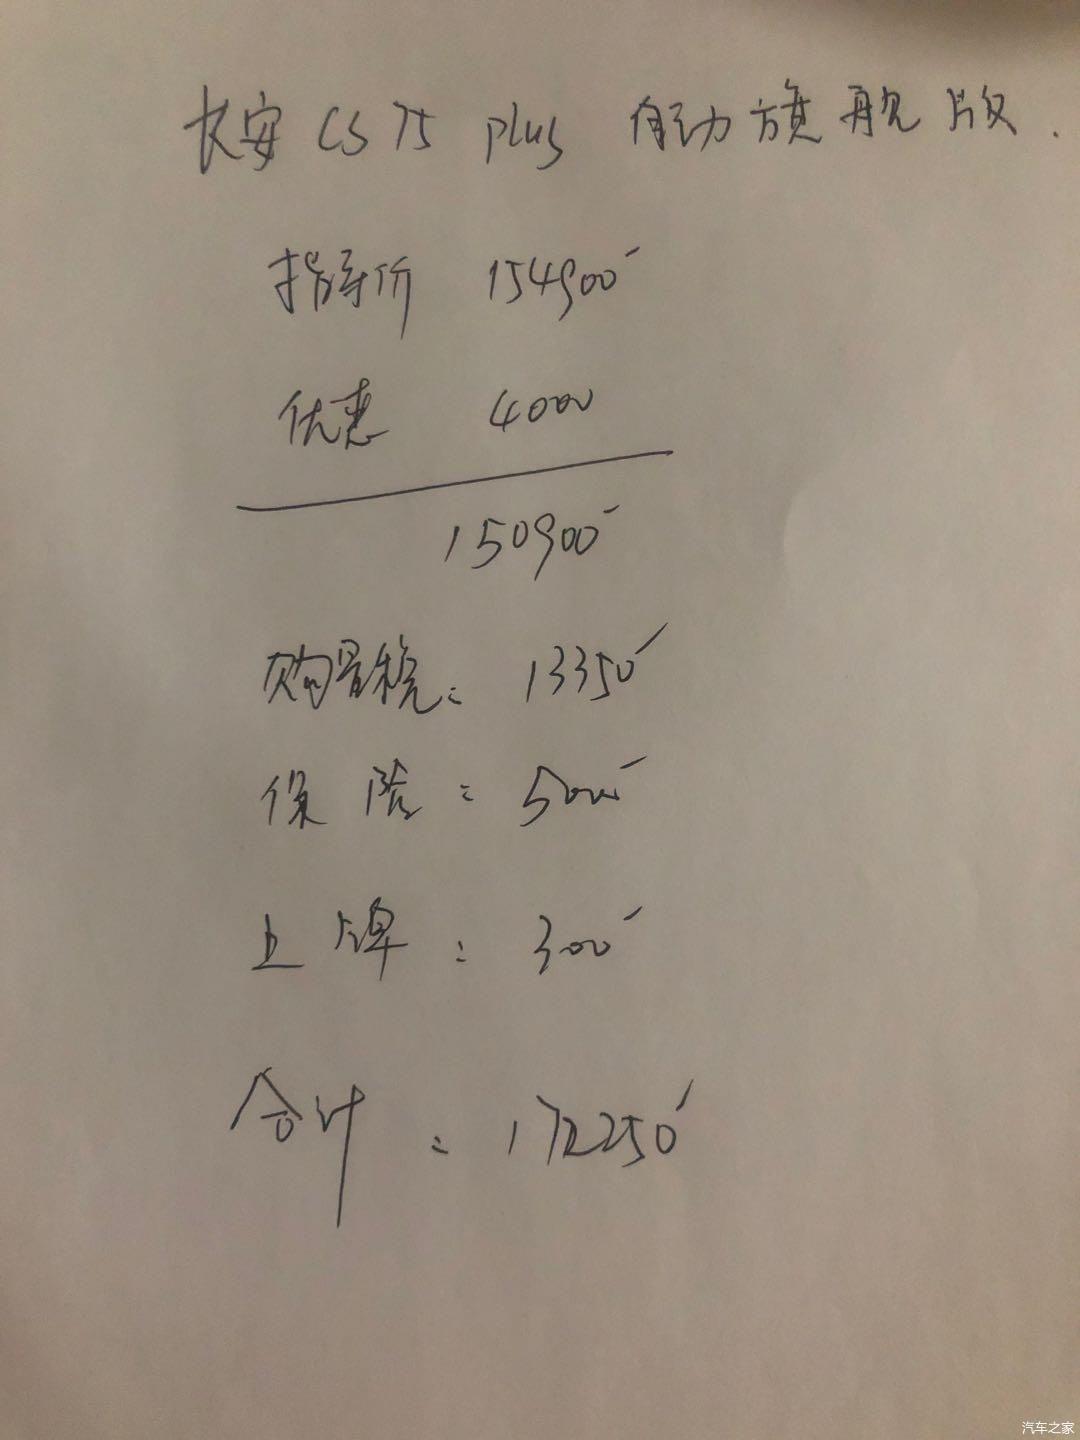 长安CS75 plus 自动旗舰版.
指导价 154900
优惠 4000
150900
购置税: 13350
保险: 5000
上牌: 300
合计: 172250
汽车之家